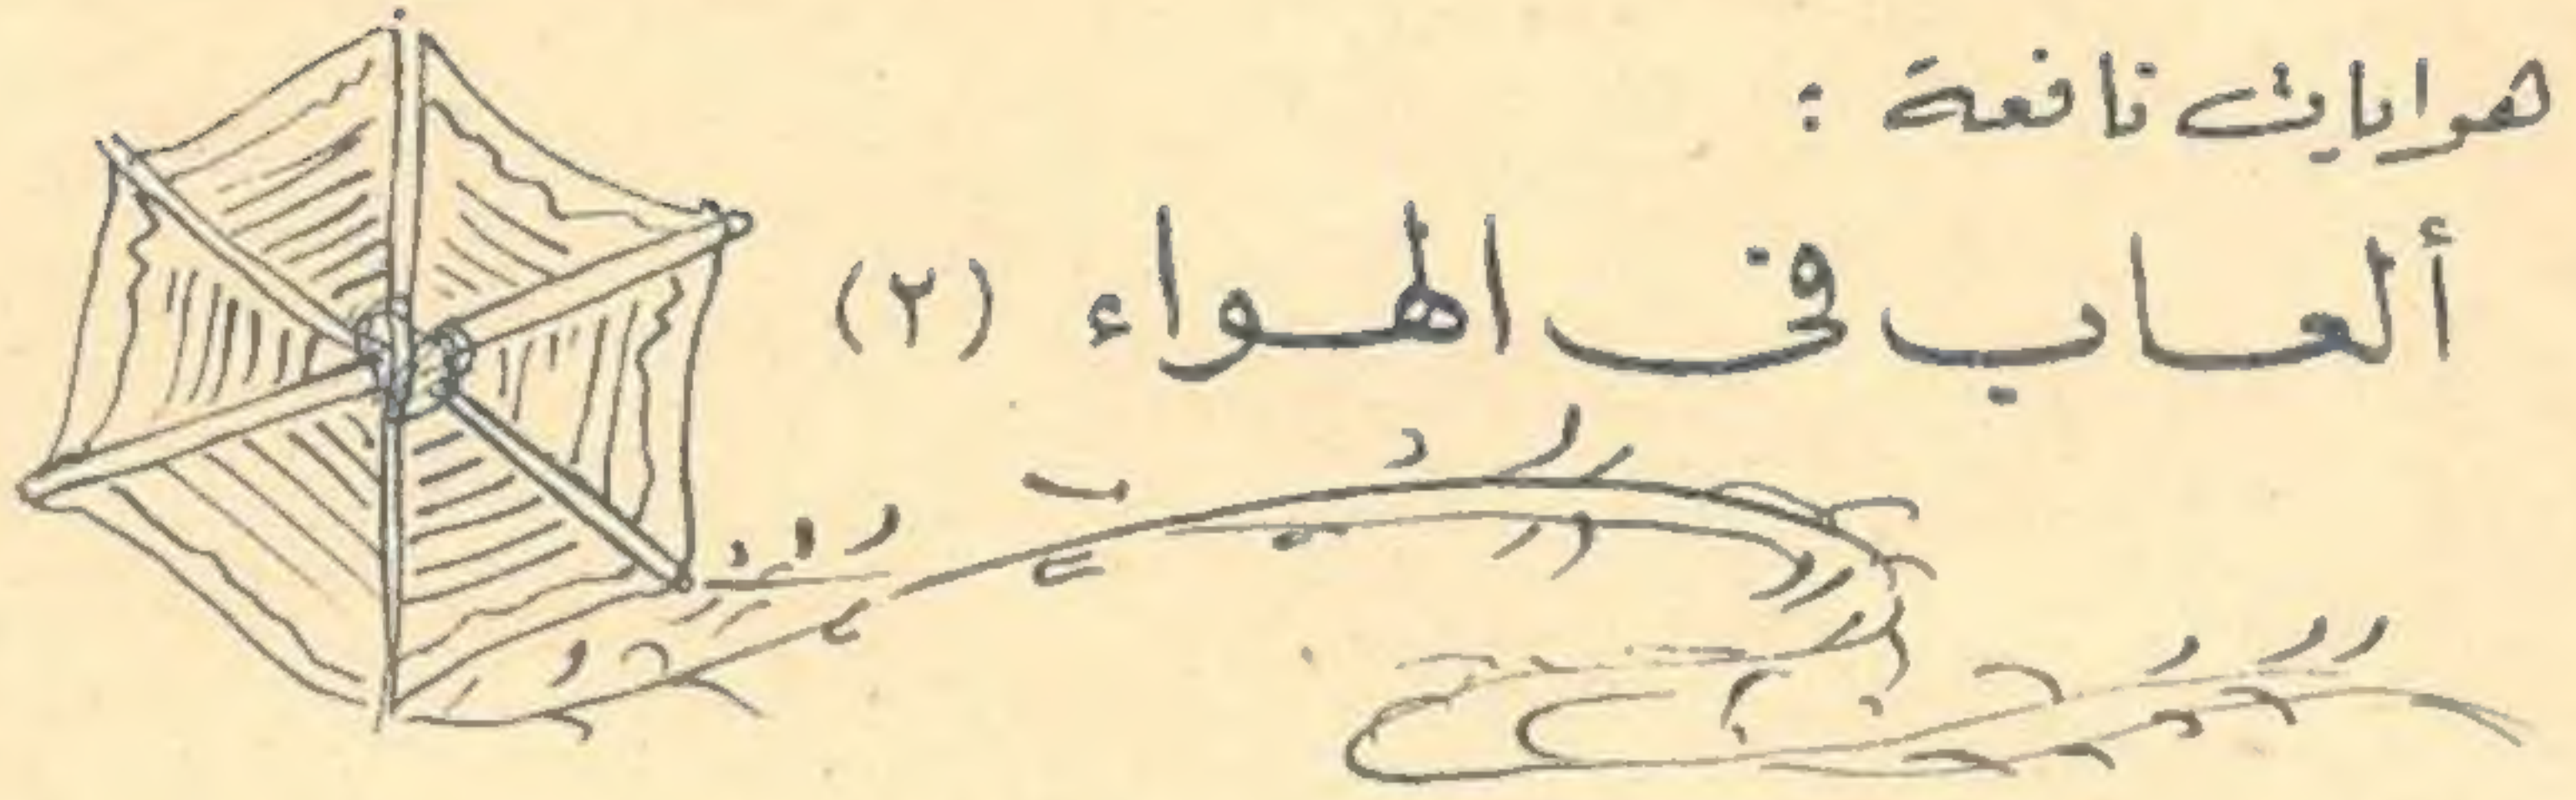 هوايات نافعة :
ألعاب فى الهواء (٢)